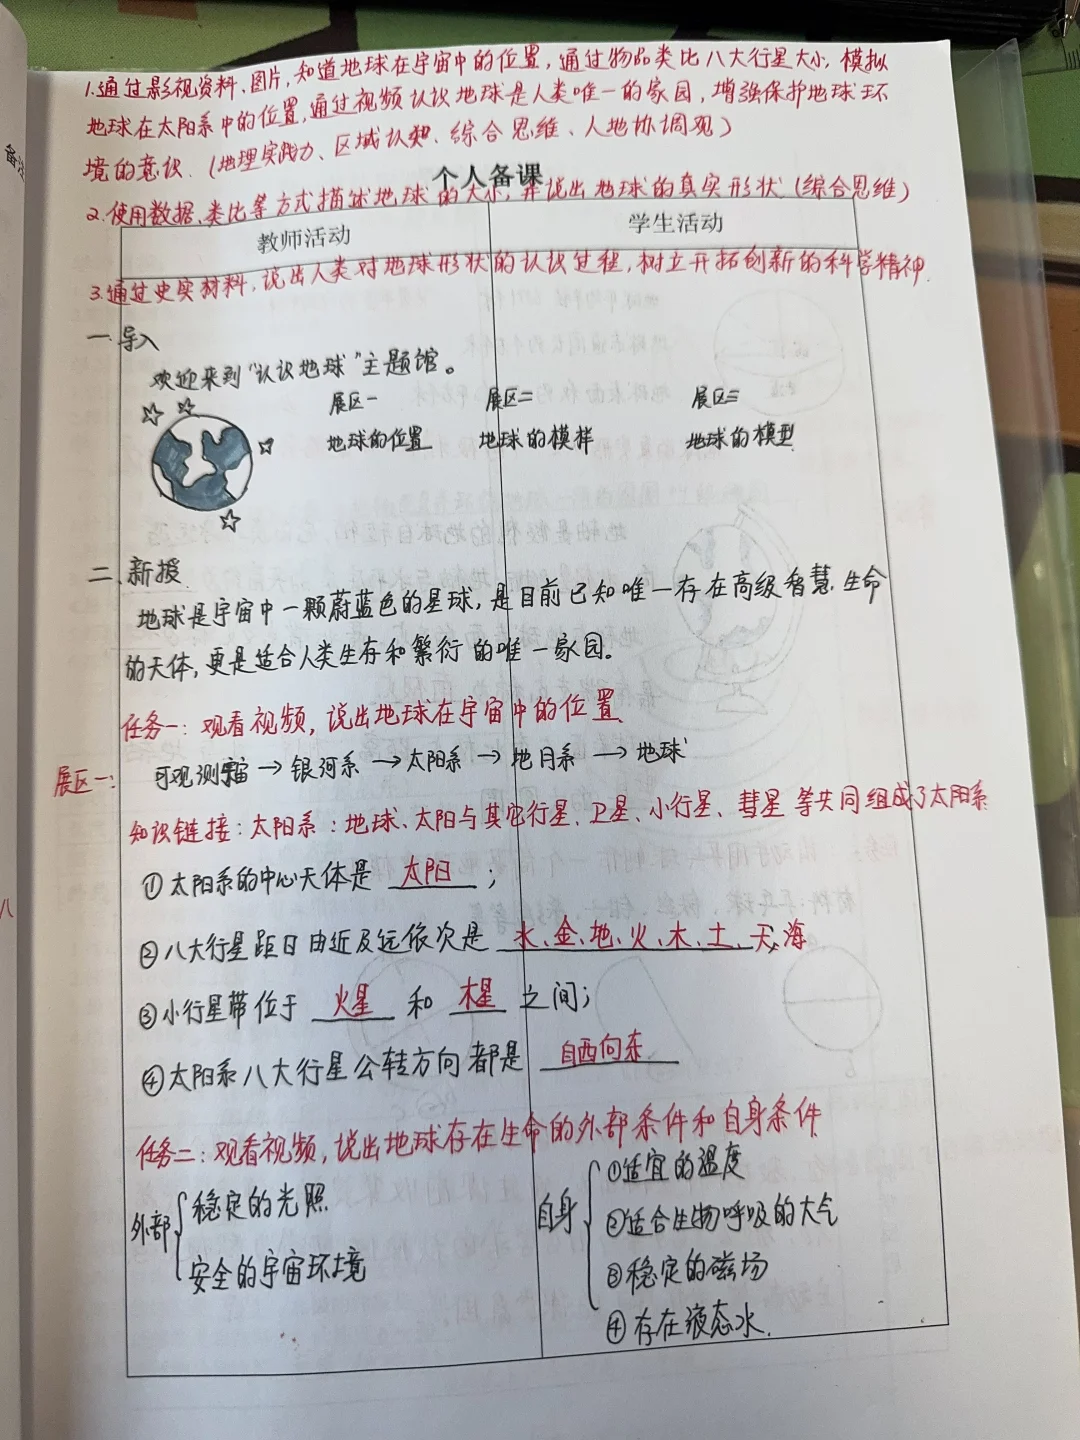 1.通过影视资料、图片,知道地球在宇宙中的位置,通过物品类比八大行星大小,模拟
地球在太阳系中的位置,通过视频认识地球是人类唯一的家园,增强保护地球环
境的意识.(地理实践力、区域认知、综合思维、人地协调观)
个人备课
2.使用数据、类比等方式描述地球的大小,并说出地球的真实形状(综合思维)
教师活动 学生活动
3.通过史实材料,说出人类对地球形状的认识过程,树立开拓创新的科学精神.
一.导入
欢迎来到“认识地球”主题馆。
展区一 展区二 展区三
地球的位置 地球的模样 地球的模型
二、新授
地球是宇宙中一颗蔚蓝色的星球,是目前已知唯一存在高级智慧生命
的天体,更是适合人类生存和繁衍的唯一家园。
任务一:观看视频,说出地球在宇宙中的位置
展区一: 可观测宇宙→银河系→太阳系→地月系→地球
知识链接:太阳系:地球、太阳与其它行星、卫星、小行星、彗星等共同组成了太阳系
①太阳系的中心天体是 太阳 ;
②八大行星距日由近及远依次是 水、金、地、火、木、土、天、海
③小行星带位于 火星 和 木星 之间;
④太阳系八大行星公转方向都是 自西向东
任务二:观看视频,说出地球存在生命的外部条件和自身条件
外部 稳定的光照
安全的宇宙环境
自身 ①适宜的温度
②适合生物呼吸的大气
③稳定的磁场
④存在液态水.